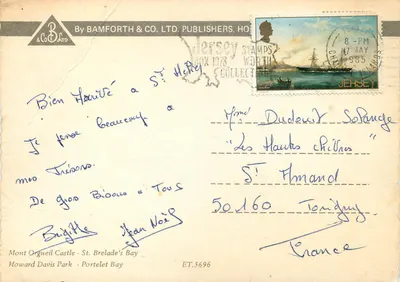 B & Co Ltd By BAMFORTH & CO. LTD. PUBLISHERS HO
8 - PM
17 MAY
1985
Jersey STAMPS
BOX 1978 WORTH
COLLECTI
JERSEY
Bien Arrivé a St Helier
Je pense beaucoup a
mes Trésors.
De gros Bisous a Tous
Brigitte Jean Noël
Mme Dudouit Solange
"Les Hauts chênes"
St Amand
50160 Torigny
France
Mont Orgueil Castle - St. Brelade's Bay
Howard Davis Park - Portelet Bay ET.5696